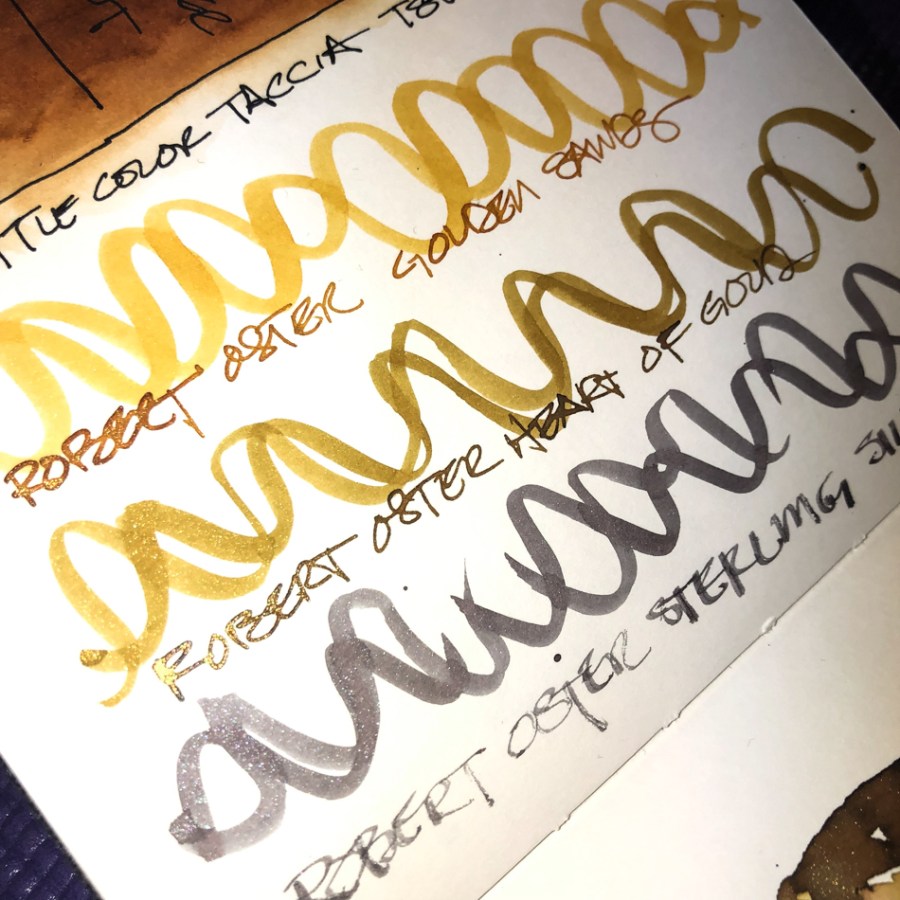 COLOR TACCIA
ROBERT OSTER GOLDEN SANDS
ROBERT OSTER HEART OF GOLD
ROBERT OSTER STERLING